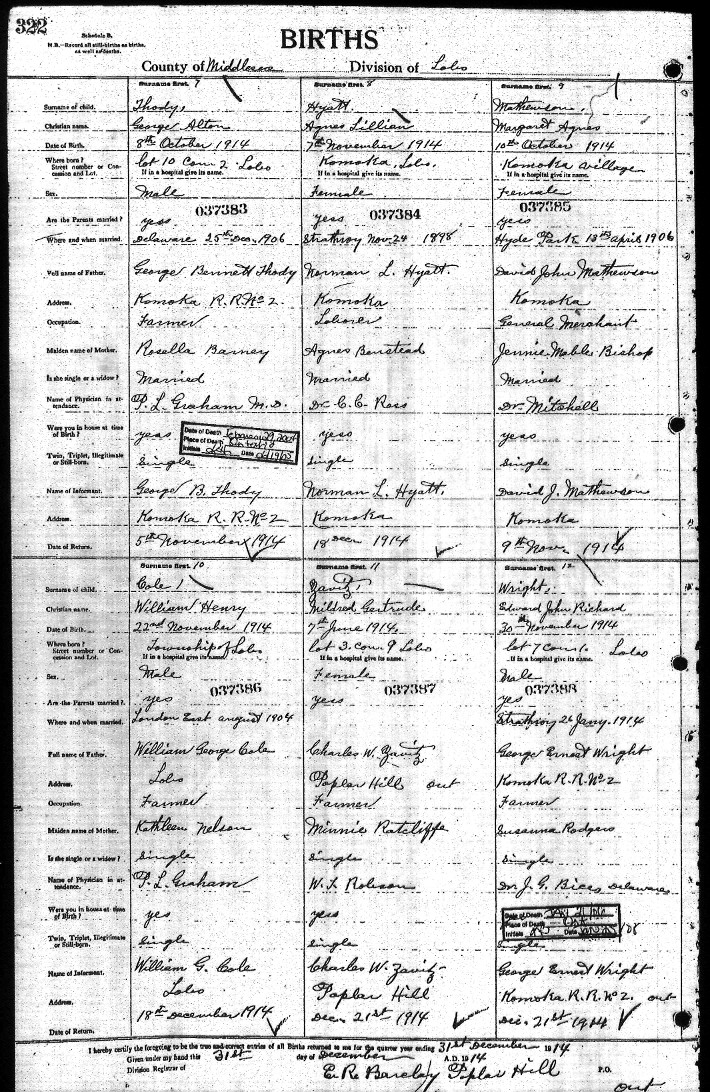 322
Schedule B.
N.B.—Record all still-births as births,
as well as deaths.
BIRTHS
County of Middlesex Division of Lobo
Surname first. 7 Surname first. 8 Surname first. 9
Surname of child. Thody, Hyatt. Mathewson,
Christian name. George Alton Agnes Lillian Margaret Agnes
Date of Birth. 8th October 1914 7th November 1914 10th October 1914
Where born? Street number or Concession and Lot. lot 10 Con. 2. Lobo Komoka, Lobo. Komoka village
If in a hospital give its name. If in a hospital give its name. If in a hospital give its name.
Sex. Male Female Female
037383 037384 037385
Are the Parents married? yess yess yess
Where and when married. Delaware 25th Dec. 1906 Strathroy Nov. 24 1898 Hyde Park 18th april 1906
Full name of Father. George Bennett Thody Norman L. Hyatt. David John Mathewson
Address. Komoka R.R. No 2. Komoka Komoka
Occupation. Farmer Laborer General Merchant
Maiden name of Mother. Rosella Barney Agnes Benstead Jennie Mable Bishop
Is she single or a widow? Married Married Married
Name of Physician in attendance. P. L. Graham M.D. Dr. C. C. Ross Dr. Mitchell
Were you in house at time of Birth? yess yess yess
Date of Death
Place of Death
Initials Date
Twin, Triplet, Illegitimate or Still-born. Single Single Single
Name of Informant. George B. Thody Norman L. Hyatt. David J. Mathewson
Address. Komoka R. R. No 2 Komoka Komoka
Date of Return. 5th November 1914 18 Dec 1914 9th Nov. 1914
Surname first. 10 Surname first. 11 Surname first. 12
Surname of child. Cole Zavitz, Wright,
Christian name. William Henry Mildred Gertrude Edward John Richard
Date of Birth. 22nd November 1914 7th June 1914. 30th November 1914
Where born? Street number or Concession and Lot. Township of Lobo lot 3. con. 9 Lobo lot 7 Con 1. Lobo
If in a hospital give its name. If in a hospital give its name. If in a hospital give its name.
Sex. Male Female Male
037386 037387 037388
Are the Parents married? yes yess yes
Where and when married. London East august 1904 Strathroy 26 Jany. 1914
Full name of Father. William George Cole Charles W. Zavitz George Ernest Wright
Address. Lobo Poplar Hill out Komoka R.R. No 2
Occupation. Farmer Farmer Farmer
Maiden name of Mother. Kathleen Nelson Minnie Ratcliffe Susanna Rodgers
Is she single or a widow? Single Single Single
Name of Physician in attendance. P. L. Graham W. F. Robison Dr. J. G. Delaware
Were you in house at time of Birth? yes yess
Date of Death
Place of Death
Initials Date
Twin, Triplet, Illegitimate or Still-born. Single Single Single
Name of Informant. William G. Cole Charles W. Zavitz George Ernest Wright
Address. Lobo Poplar Hill Komoka R.R. No 2. out
Date of Return. 18th December 1914 Dec. 21st 1914 Dec. 21st 1914
I hereby certify the foregoing to be the true and correct entries of all Births returned to me for the quarter year ending 31st December 1914
Given under my hand this 31st day of December A.D. 1914
Division Registrar of E. R. Barclay Poplar Hill P.O.
out